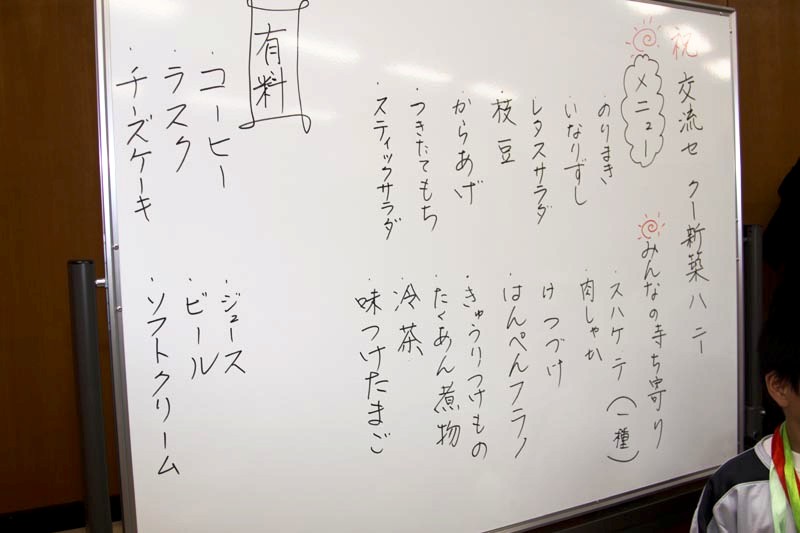 祝 交流センター新築パーティー
メニュー
・のりまき
・いなりずし
・レタスサラダ
・枝豆
・からあげ
・つきたてもち
・スティックサラダ
みんなの持ち寄り
・スパゲティ(一種)
・肉じゃが
・はんぺんフライ
・きゅうりつけもの
・たくあん煮物
・冷茶
・味つけたまご
有料
・コーヒー
・ラスク
・チーズケーキ
・ジュース
・ビール
・ソフトクリーム